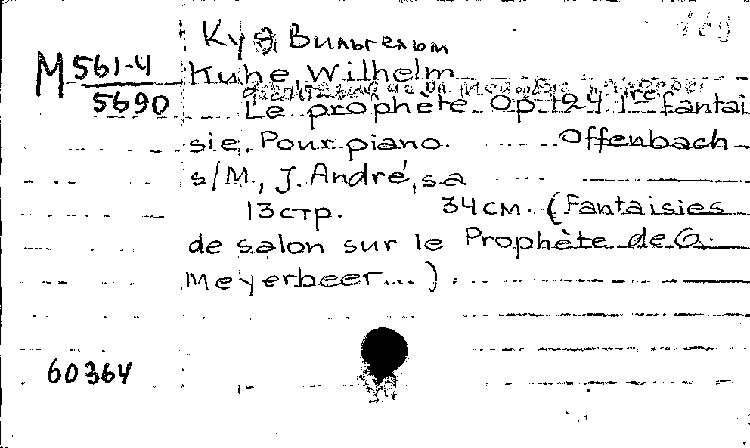 Куэ Вильгельм
М 561-4
5690
Kuhe, Wilhelm
Le prophète. Op. 124 1re fantai
sie. Pour piano. Offenbach
s/M., J. André, s a
13 стр. 34 см. (Fantaisies
de salon sur le Prophète de G.
Meyerbeer...)
60364